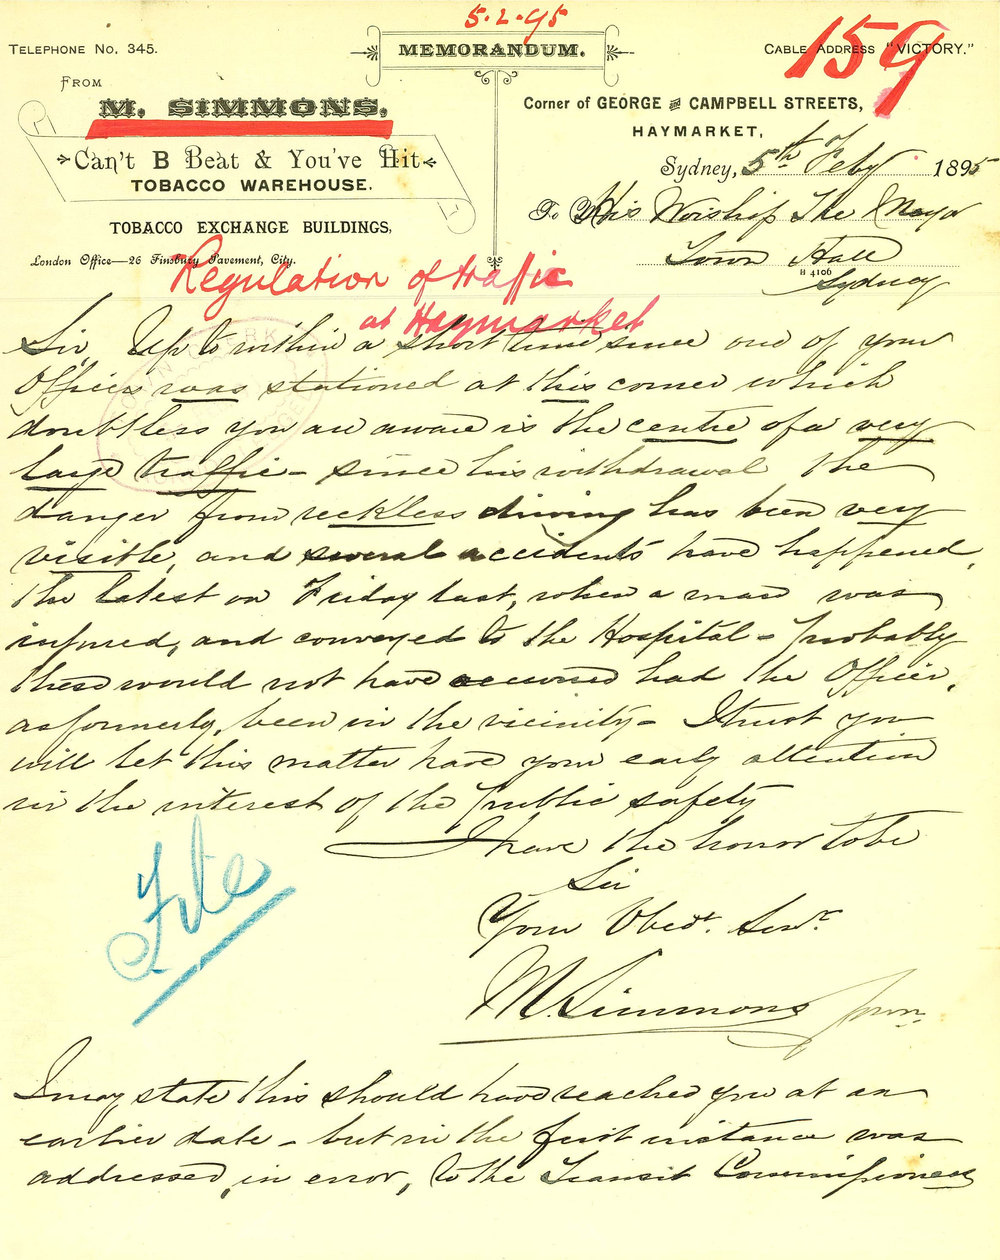 5.2.95
TELEPHONE NO. 345.
MEMORANDUM.
CABLE ADDRESS "VICTORY."
159
FROM
M. SIMMONS,
Can't B Beat & You've Hit
TOBACCO WAREHOUSE.
TOBACCO EXCHANGE BUILDINGS,
London Office—26 Finsbury Pavement, City.
Corner of GEORGE AND CAMPBELL STREETS,
HAYMARKET,
Sydney, 5th Feby 1895
To His Worship The Mayor
Town Hall
H 4106
Sydney
Regulation of traffic
at Haymarket
Sir, Up to within a short time since one of your
Officers was stationed at this corner which
doubtless you are aware is the centre of a very
large traffic - since his withdrawal the
danger from reckless driving has been very
visible, and several accidents have happened,
the latest on Friday last, when a man was
injured, and conveyed to the Hospital - probably
these would not have occurred had the Officer,
as formerly, been in the vicinity - I trust you
will let this matter have your early attention
in the interest of the public safety
I have the honor to be
Sir
Your Obedt. Servt.
M. Simmons
File
I may state this should have reached you at an
earlier date - but in the first instance was
addressed, in error, to the Transit Commissioners